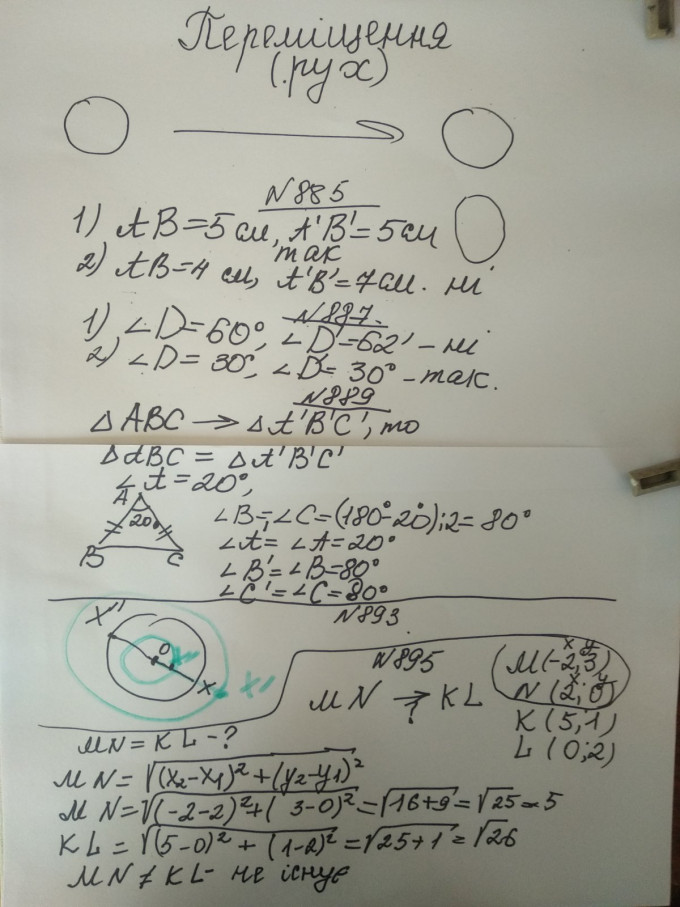 Переміщення
(рух)
N885
1) AB=5 см, A'B'=5см
так
2) AB=4 см, A'B'=7см. ні
N887.
1) ∠D=60°, ∠D'=62' – ні
2) ∠D= 30°, ∠D'= 30° – так.
N889
△ABC → △A'B'C', то
△ABC = △A'B'C'
∠A=20°,
A
20°
B C
∠B=∠C=(180°-20°):2=80°
∠A'= ∠A=20°
∠B'=∠B=80°
∠C'=∠C=80°
N893
X''
O
X
X'
N895
MN → KL
?
x y
M(-2;3)
x y
N(2;0)
K(5;1)
L(0;2)
MN = KL - ?
MN=√(x₂-x₁)²+(y₂-y₁)²
MN=√(-2-2)²+( 3-0)²=√16+9=√25=5
KL=√(5-0)²+(1-2)²=√25+1=√26
MN≠KL- не існує